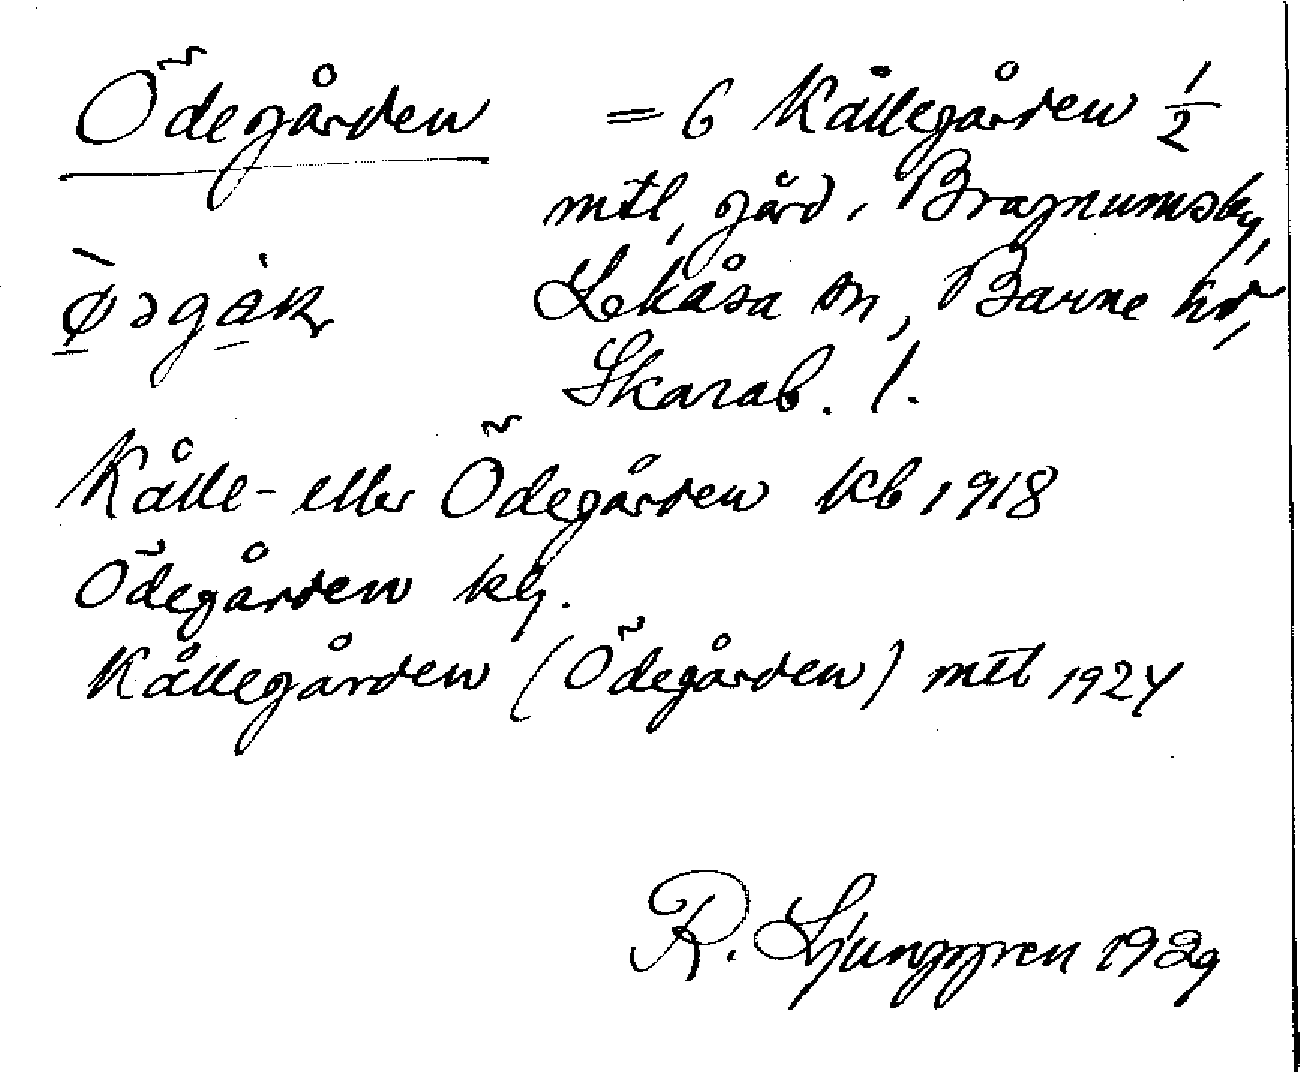 Ödegården = 6 Kållegården 1/2
mtl, gård, Bragnumsby,
Lekåsa sn, Barne hd,
Skarab. l.
Kålle- eller Ödegården kb 1918
Ödegården kg.
Kållegården (Ödegården) mtl 1924
R. Ljunggren 1929